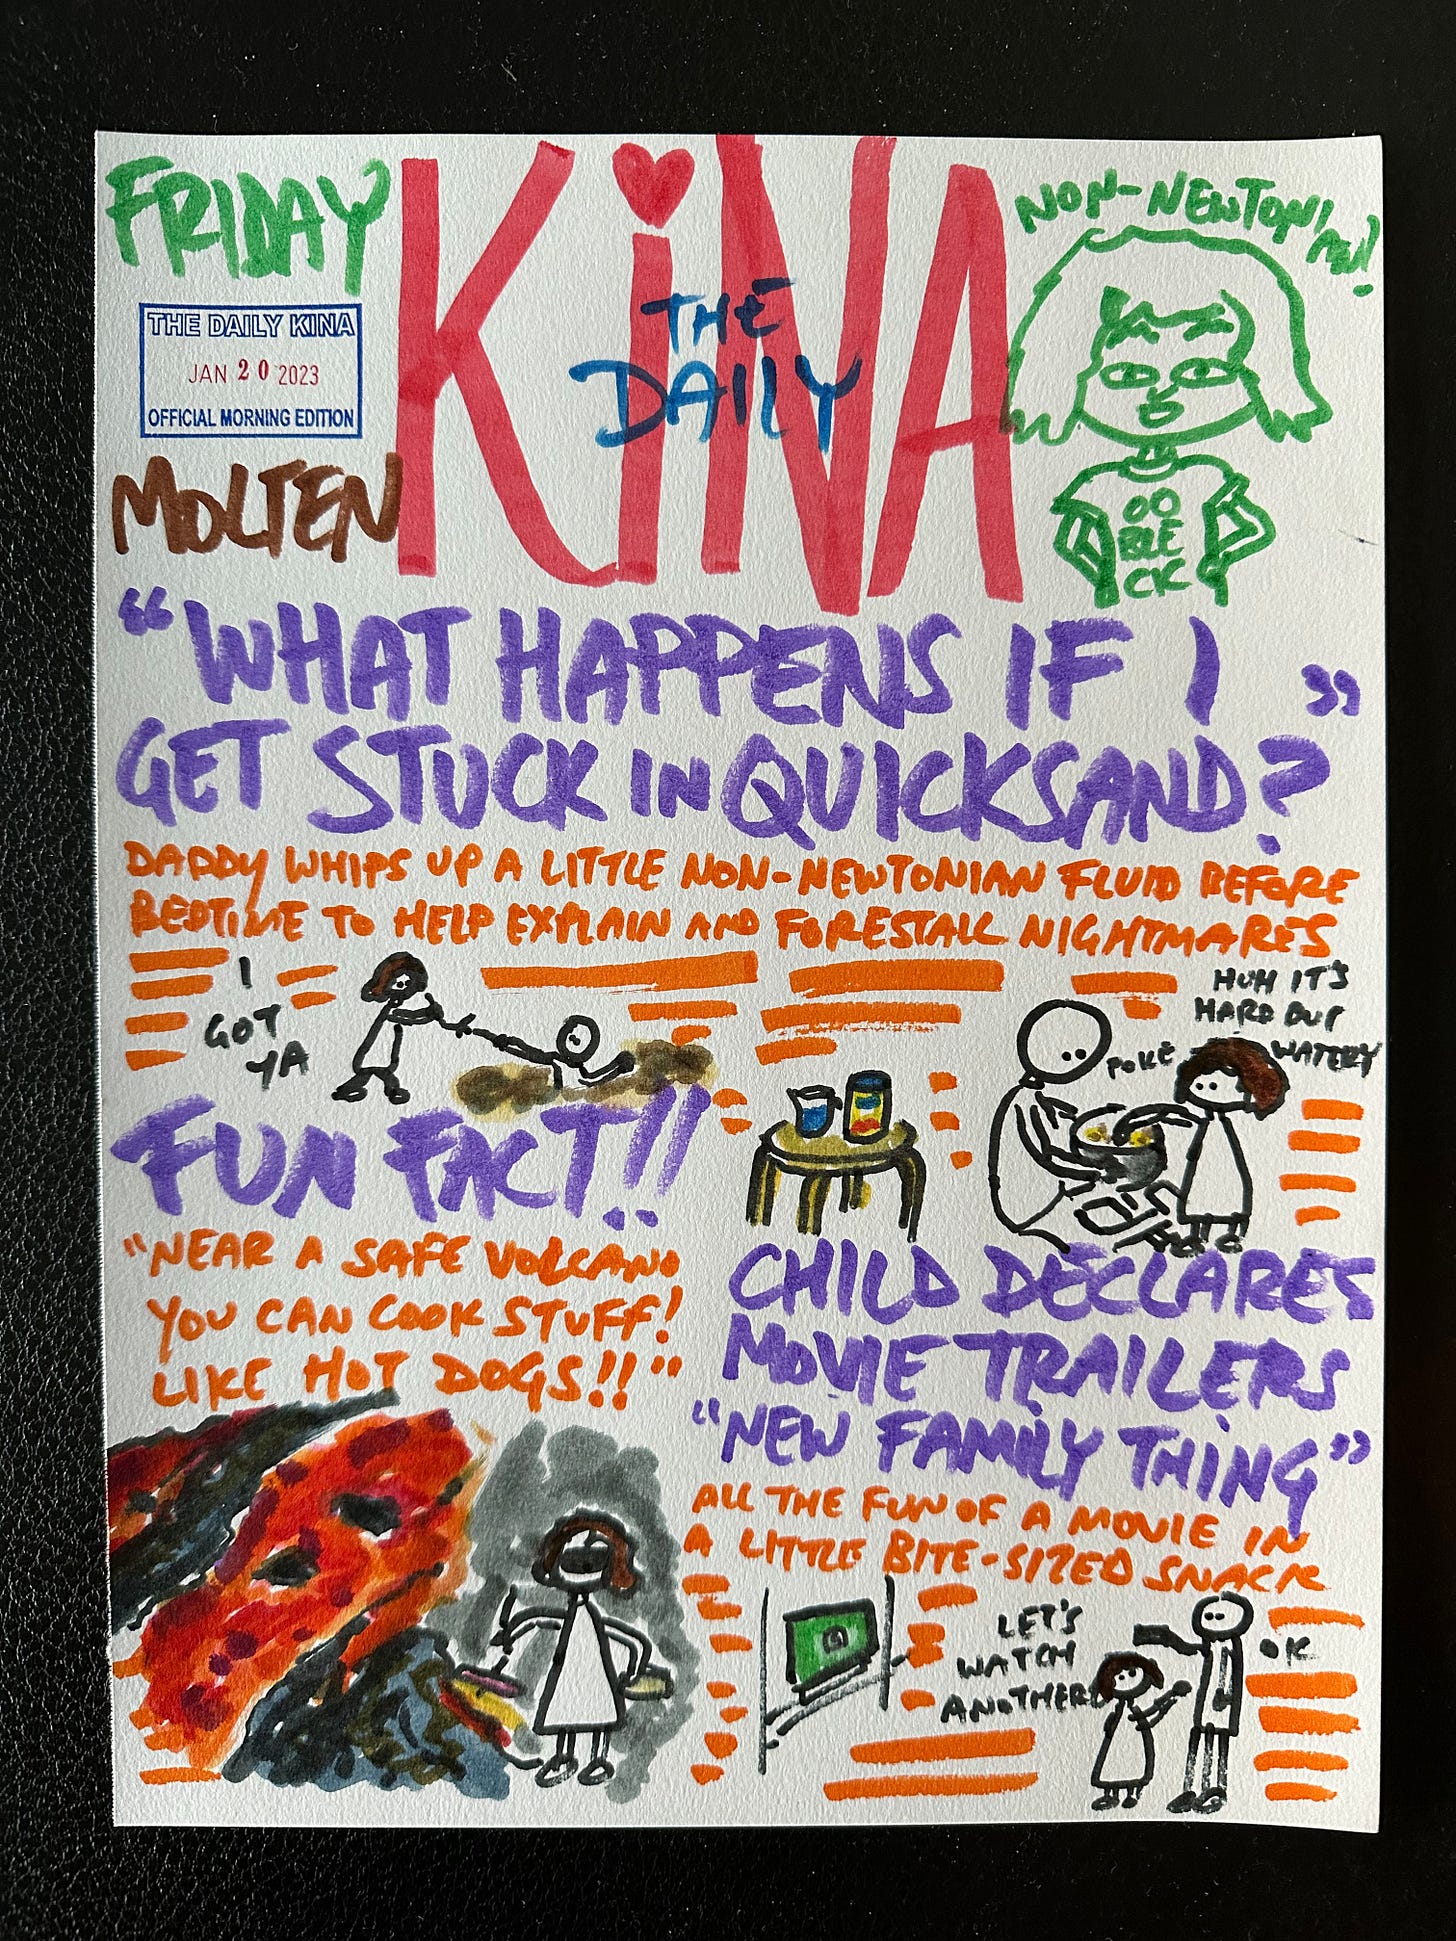 FRIDAY
THE DAILY KINA
JAN 20 2023
OFFICIAL MORNING EDITION
MOLTEN
KiNA
THE
DAILY
NON-NEWTONIAN!
OO
BLE
CK
"WHAT HAPPENS IF I
GET STUCK IN QUICKSAND?"
DADDY WHIPS UP A LITTLE NON-NEWTONIAN FLUID BEFORE
BEDTIME TO HELP EXPLAIN AND FORESTALL NIGHTMARES
I
GOT
YA
HUH IT'S
HARD BUT
WATERY
POKE
FUN FACT!!
"NEAR A SAFE VOLCANO
YOU CAN COOK STUFF!
LIKE HOT DOGS!!"
CHILD DECLARES
MOVIE TRAILERS
"NEW FAMILY THING"
ALL THE FUN OF A MOVIE IN
A LITTLE BITE-SIZED SNACK
LET'S
WATCH
ANOTHER!
OK